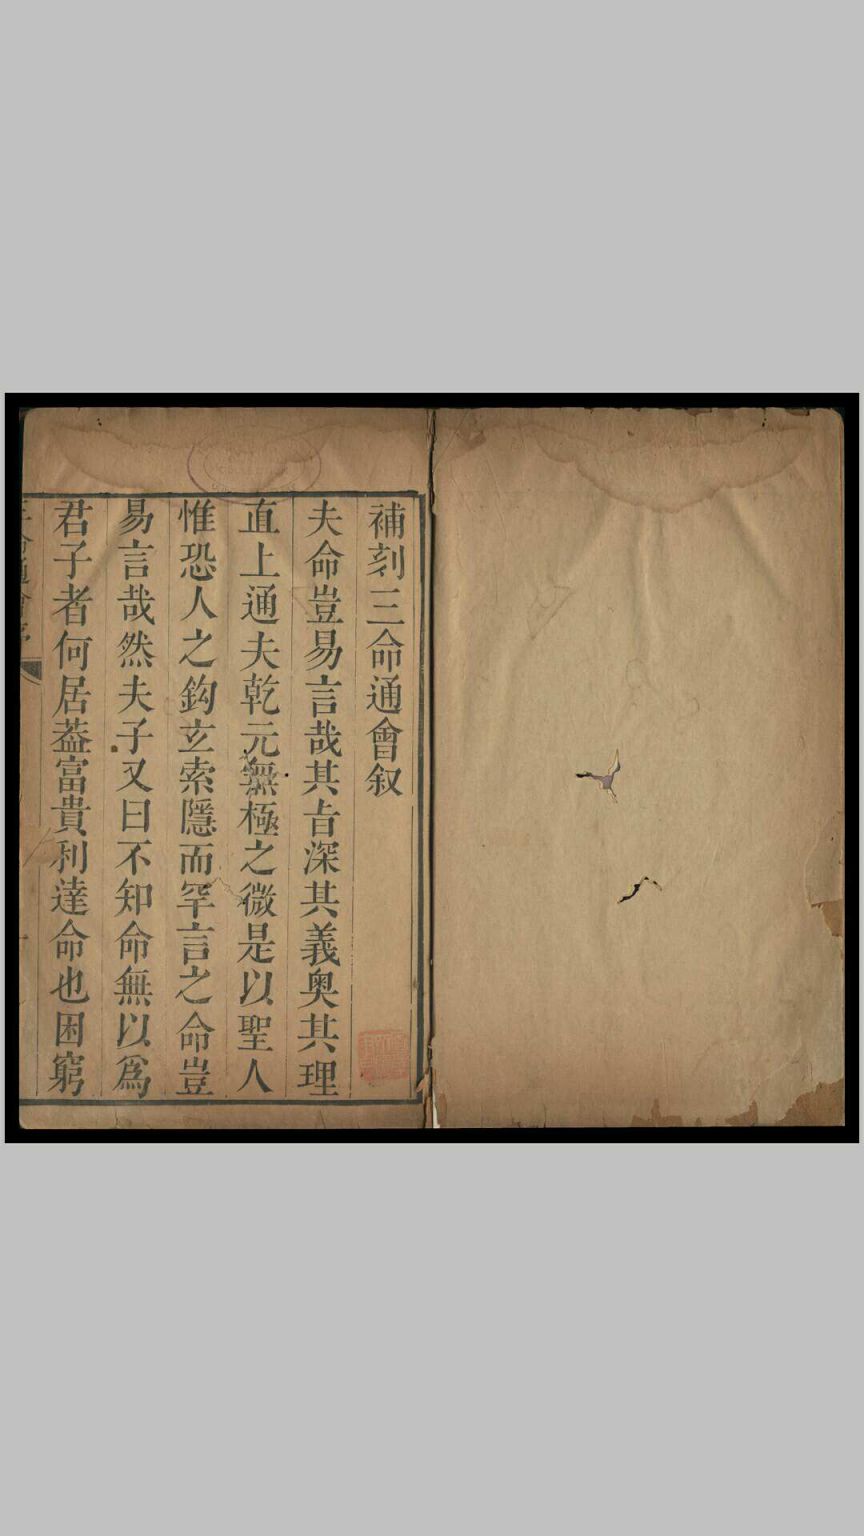 補刻三命通會叙
夫命豈易言哉其旨深其義奥其理
直上通夫乾元無極之微是以聖人
惟恐人之鈎玄索隱而罕言之命豈
易言哉然夫子又曰不知命無以爲
君子者何居葢富貴利達命也困窮